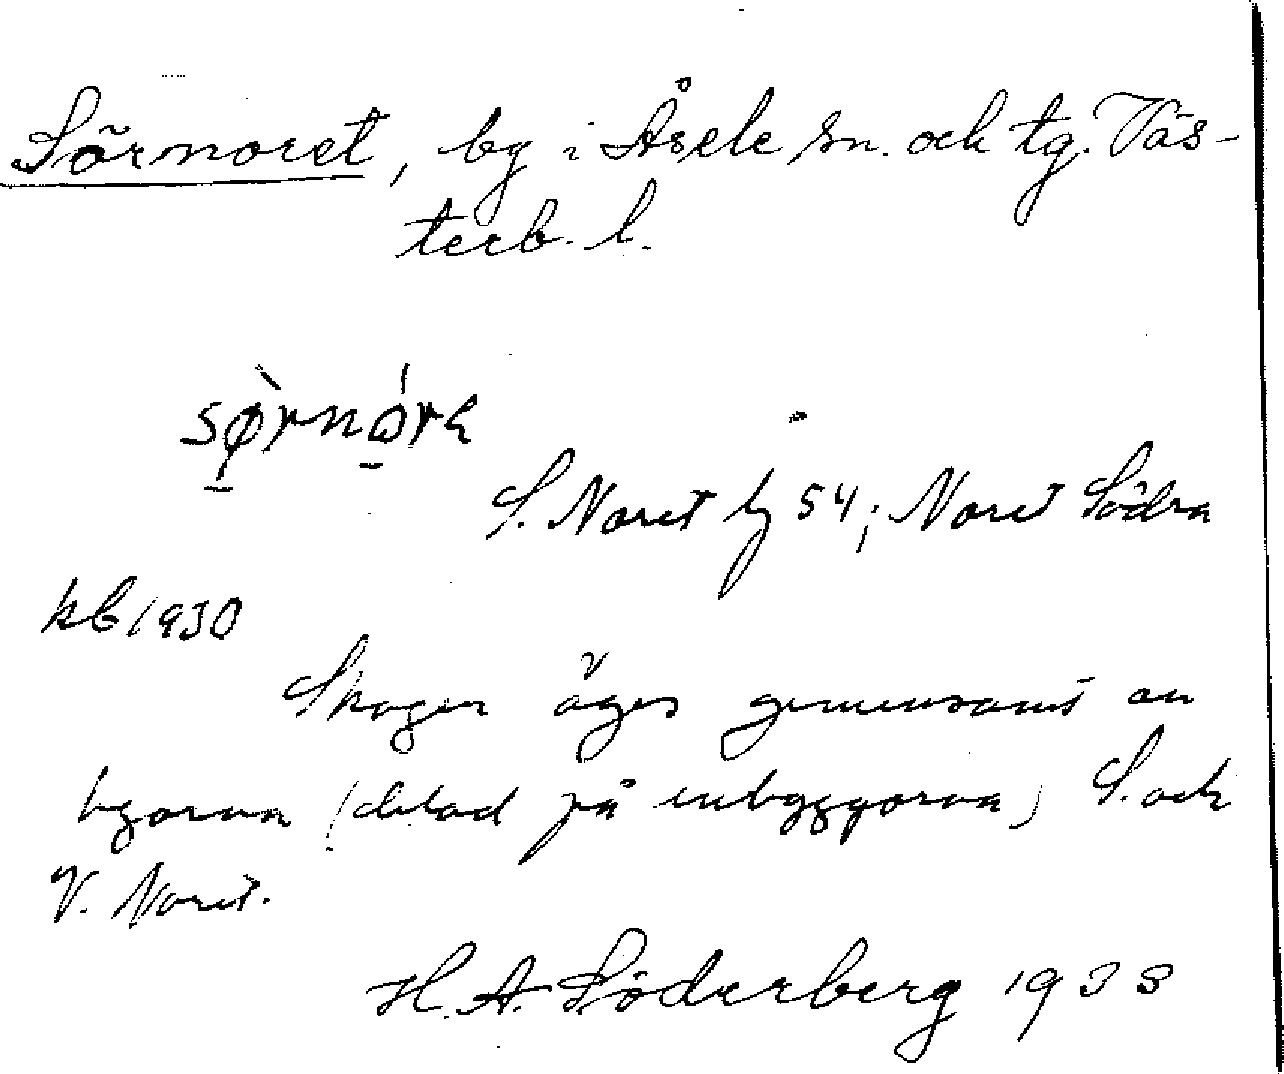 Sörnoret, by i Åsele sn. och tg. Väs-
terb. l.
S. Noret by 54; Noret Södra
kb 1930
Skogen äges gemensamt av
byarna (delad på inbyggarna) S. och
V. Noret.
H. A. Söderberg 1933